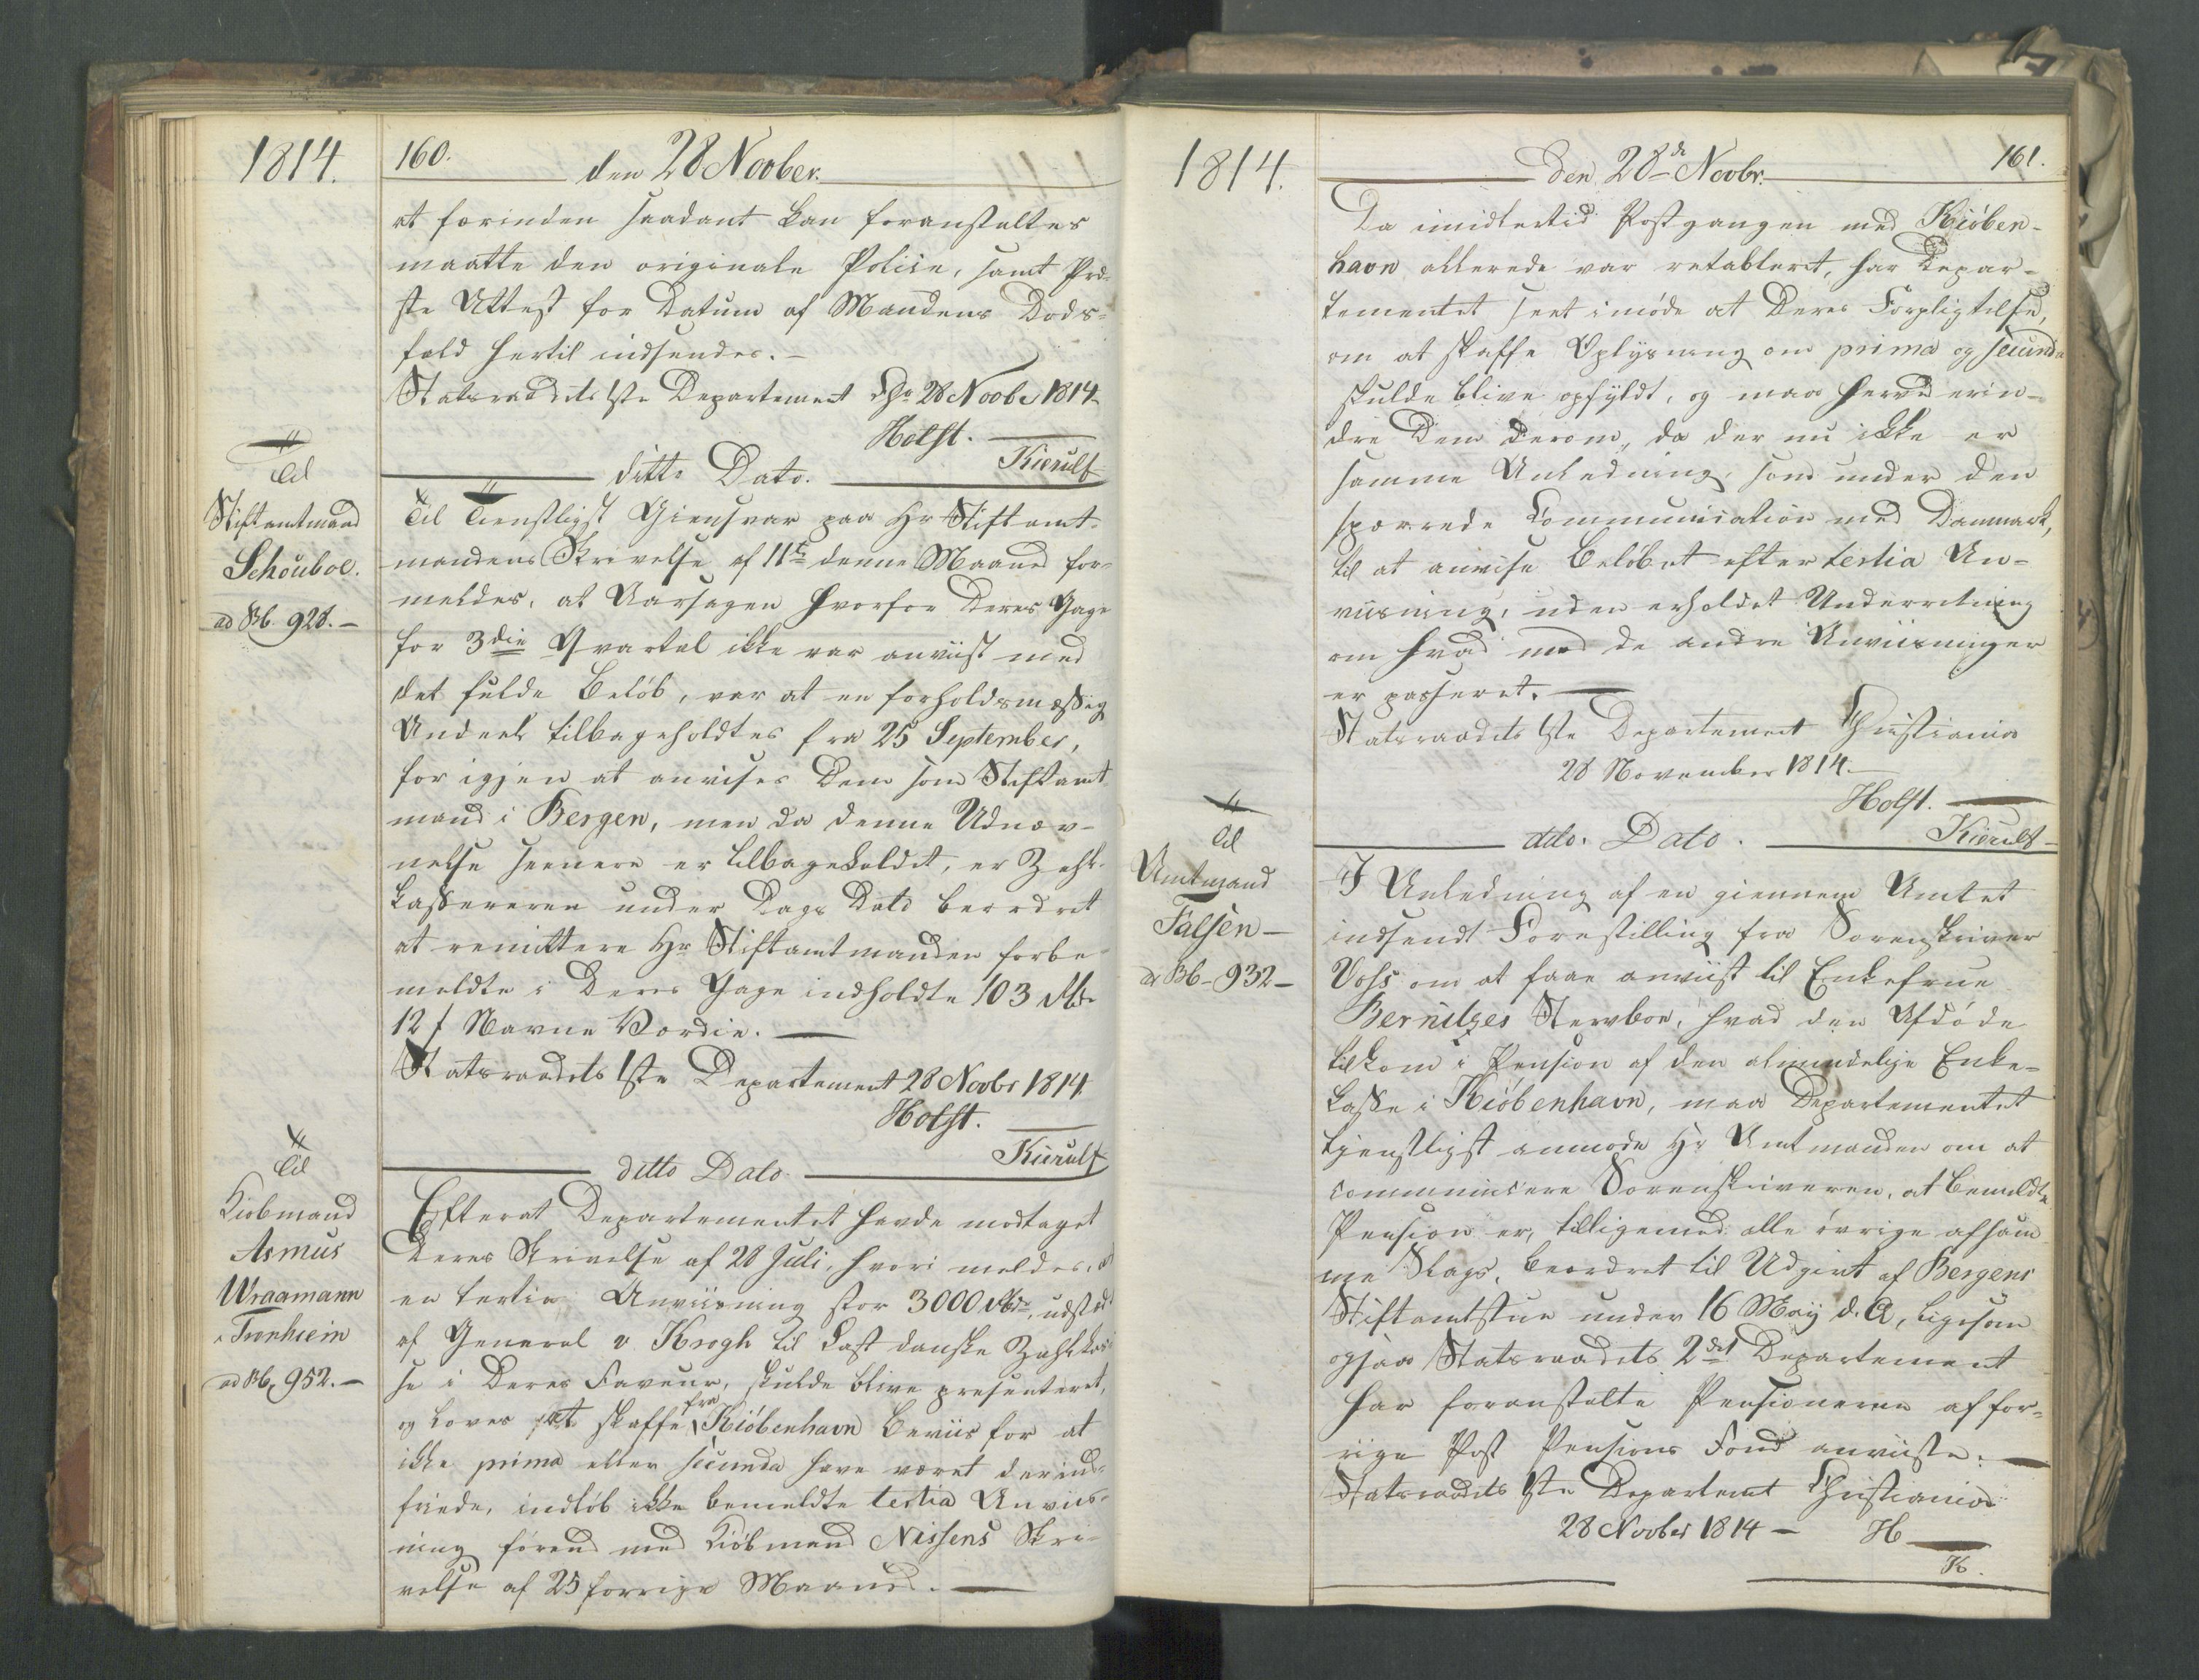 1814.
160.
den 28 Novber.
at forinden saadant kan foranstaltes
maatte den originale Police, samt Præ-
ste Attest for Datum af Mandens Døds-
fald hertil indsendes. -
Statsraadets 1ste Departement Cha 28 Novbr 1814
Holst.
Kierulf
ditto Dato.
Til
Stiftamtmand
Schouboe.
ad Bb. 928. -
Til Tienstligst Giensvar paa Hr Stiftamt-
mandens Skrivelse af 11te denne Maaned for-
meldes, at Aarsagen hvorfor Deres Gage
for 3die Qvartal ikke var anviist med
det fulde Beløb, var at en forholdsmæssig
Andeel tilbageholdtes fra 25 September,
for igjen at anvises Dem som Stiftamt
mand i Bergen, men da denne Udnæv-
nelse senere er tilbagekaldt, er Zahl-
kassereren under Dags Dato beordret
at remittere Hr Stiftamtmanden forbe-
meldte i Deres Gage indholdte 103 Rbdr
12 s Navne Værdie.
Statsraadets 1ste Departement 28 Novbr 1814.
Holst.
Kierulf
ditto Dato
Til
Kiøbmand
Asmus
Wraamann
i Tronhiem
ad Bb. 952. -
Efterat Departementet havde modtaget
Deres Skrivelse af 28 Juli, hvori meldes, at
en tertia Anviisning stor 3000 Rbdr, udstedt
af General v. Krogh til Last danske Zahlkas-
se i Deres Faveur, skulde blive presenteret,
og loves at skaffe fra Kiøbenhavn Beviis for at
ikke prima eller secunda have været derind-
friede, indløb ikke bemeldte tertia Anviis-
ning førend med Kiøbmand Nissens Skri-
velse af 25 forrige Maaned.
1814.
den 28de Novbr.
161.
Da imidlertid Postgangen med Kiøben-
havn allerede var retableret, har Depar-
tementet seet imøde at Deres Forpligtelse,
om at skaffe Oplysning om prima og secunda
skulde blive opfyldt, og maa herved erin-
dre Dem derom, da der nu ikke er
samme Anledning, som under den
sperrede Communication med Danmark,
til at anvise Beløbet efter tertia An-
viisning, uden erholdt Underretning
om hvad med de andre Anviisninger
er passeret.
Statsraadets 1ste Departement Christiania
28 November 1814.
Holst.
Kierulf
dito Dato.
Til
Amtmand
Falsen -
ad Bb - 932 -
I Anledning af en giennem Amtet
indsendt Forestilling fra Sorenskriver
Voss om at faae anviist til Enkefrue
Bernitzes Stervboe, hvad den Afdøde
tilkom i Pension af den almindelige Enke-
kasse i Kiøbenhavn, maa Departementet
tjenstligst anmode Hr Amtmanden om at
communicere Sorenskriveren, at bemeldte
Pension er, tilligemed alle øvrige af sam-
me Slags, beordret til Udgivt af Bergens
Stiftamtstue under 16 Maij d. A, ligesom
ogsaa Statsraadets 2det Departement
har foranstalte Pensionerne af for-
rige Post Pensions Fond anviiste.
Statsraadets 1ste Departemt Christiania
28 Novber 1814 - H
K.